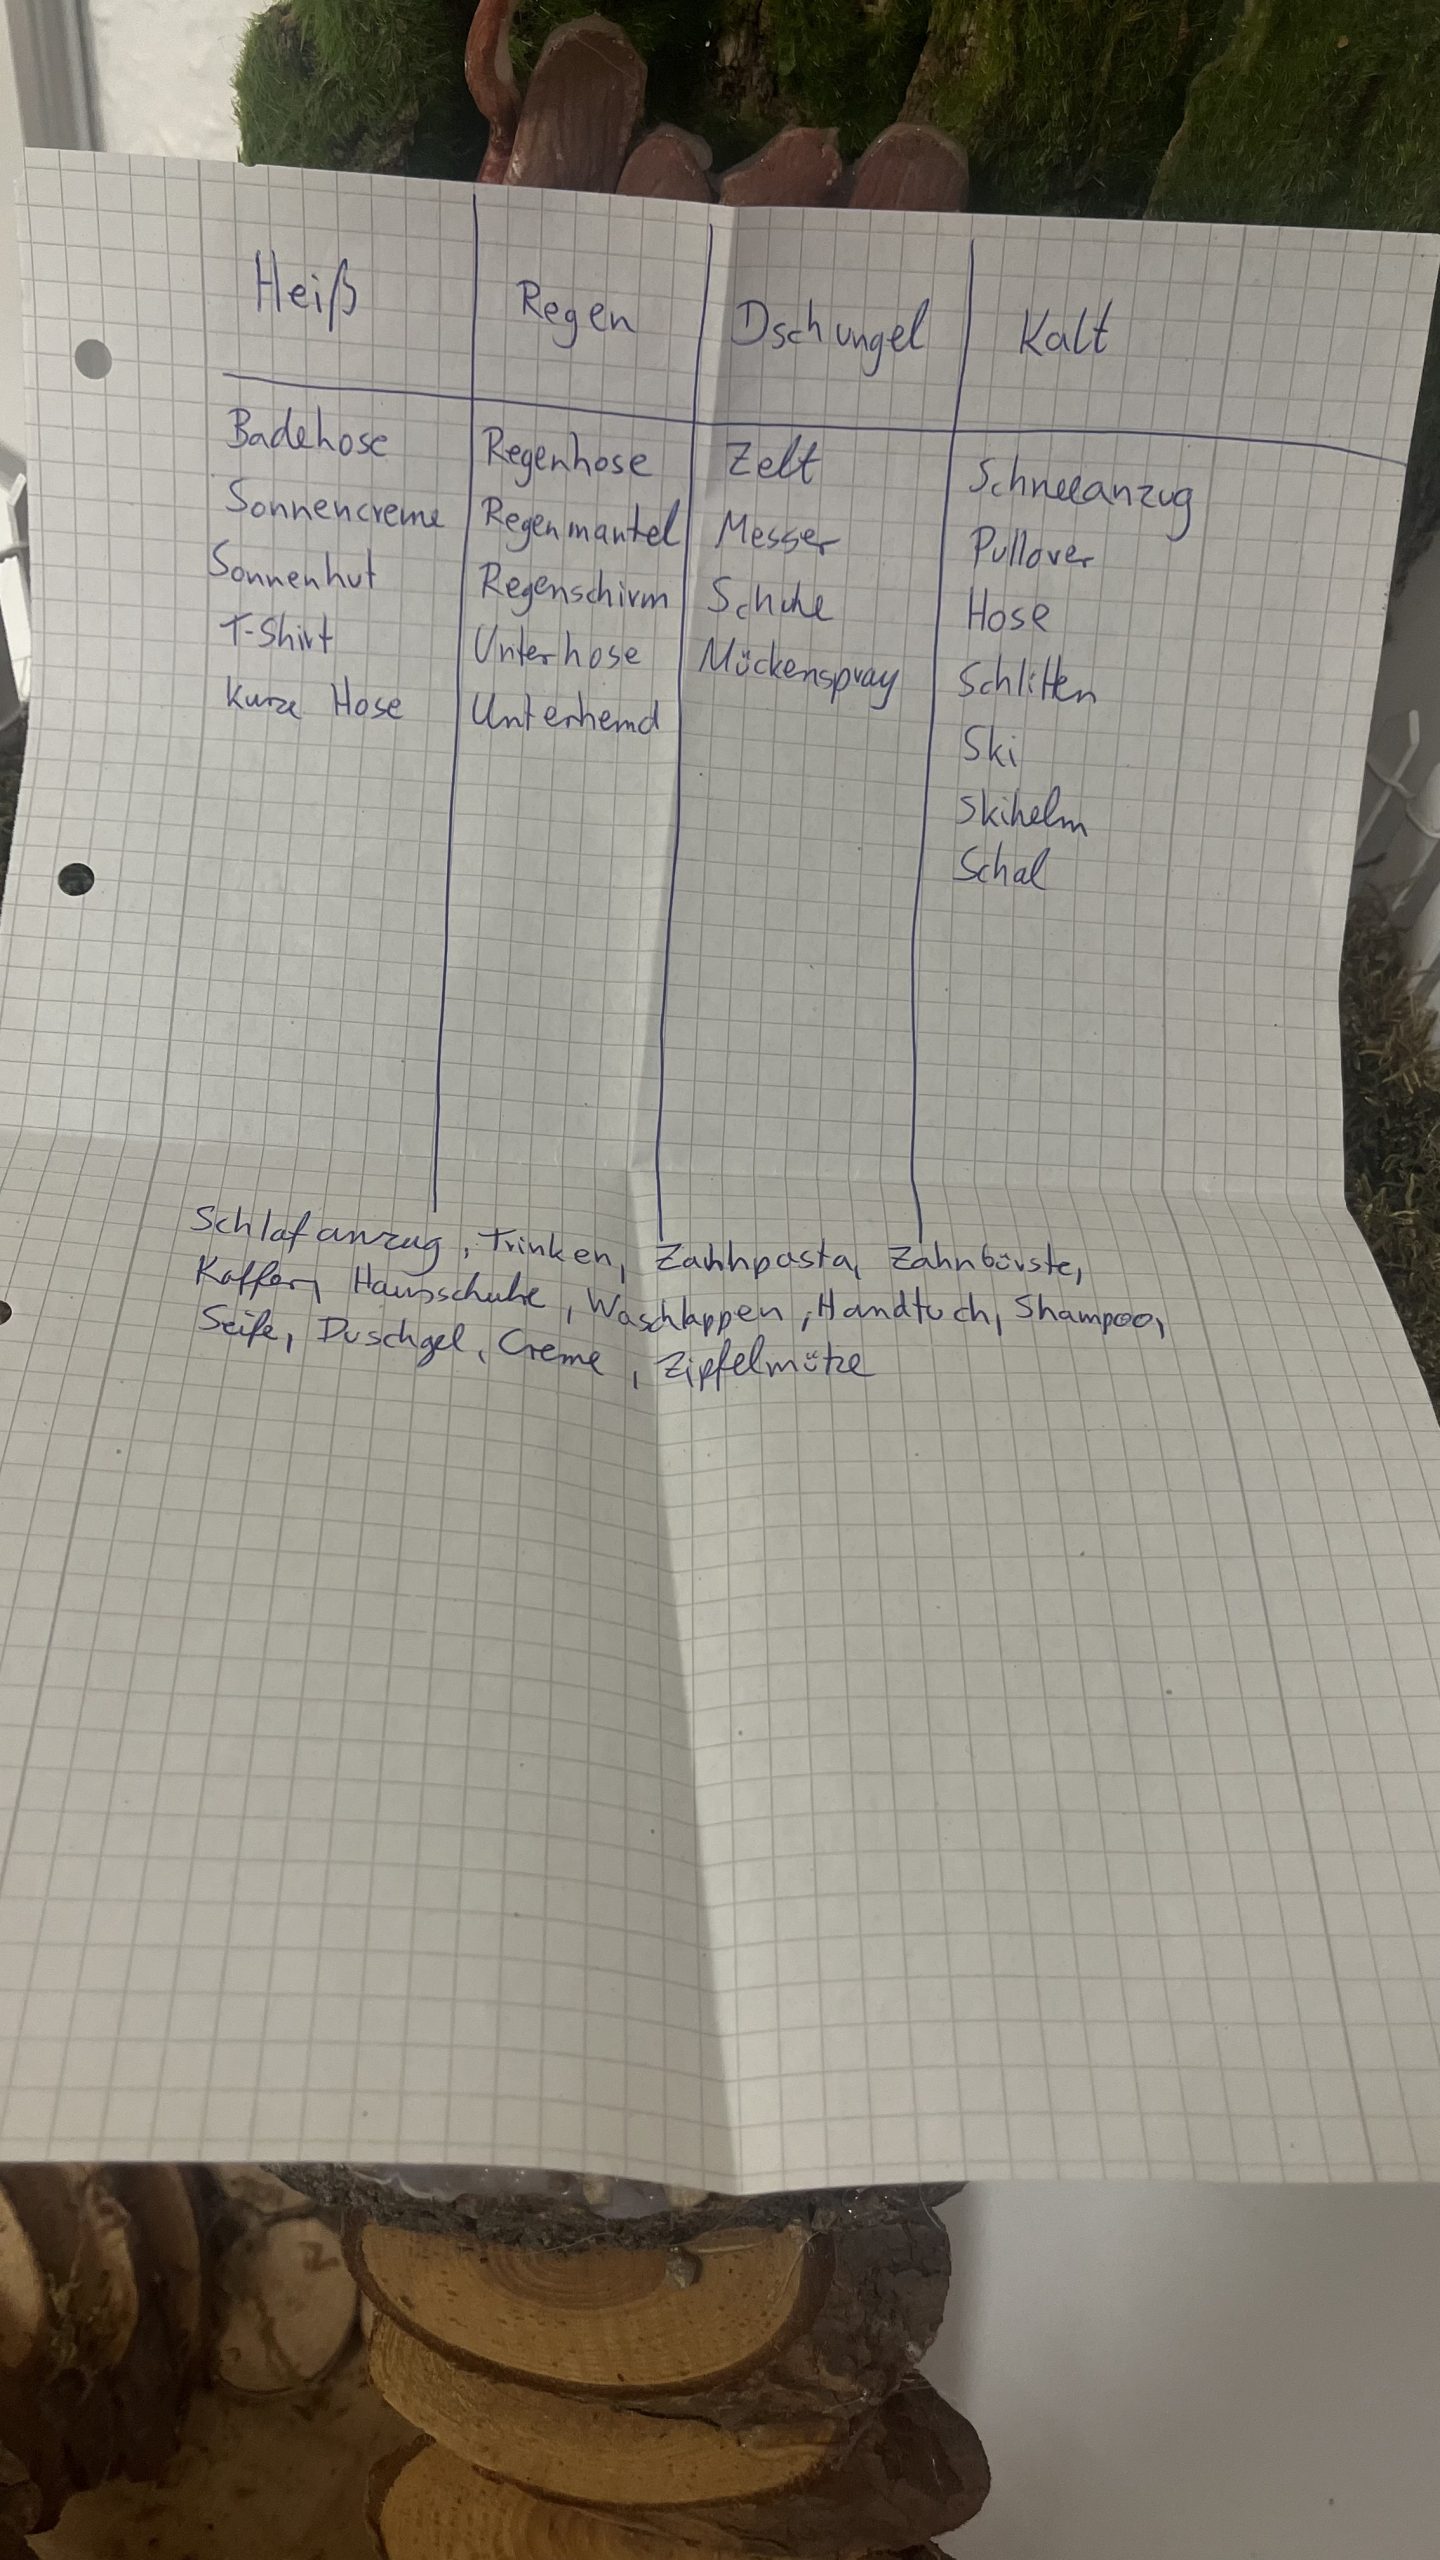 Heiß Regen Dschungel Kalt
Badehose Regenhose Zelt Schneeanzug
Sonnencreme Regenmantel Messer Pullover
Sonnenhut Regenschirm Schuhe Hose
T-Shirt Unterhose Mückenspray Schlitten
Kurze Hose Unterhemd Ski
Skihelm
Schal
Schlafanzug, Trinken, Zahnpasta, Zahnbürste,
Koffer, Hausschuhe, Waschlappen, Handtuch, Shampoo,
Seife, Duschgel, Creme, Zipfelmütze